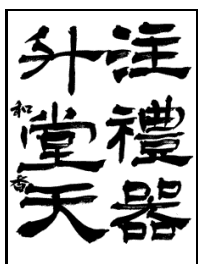 注禮器
升堂天
和